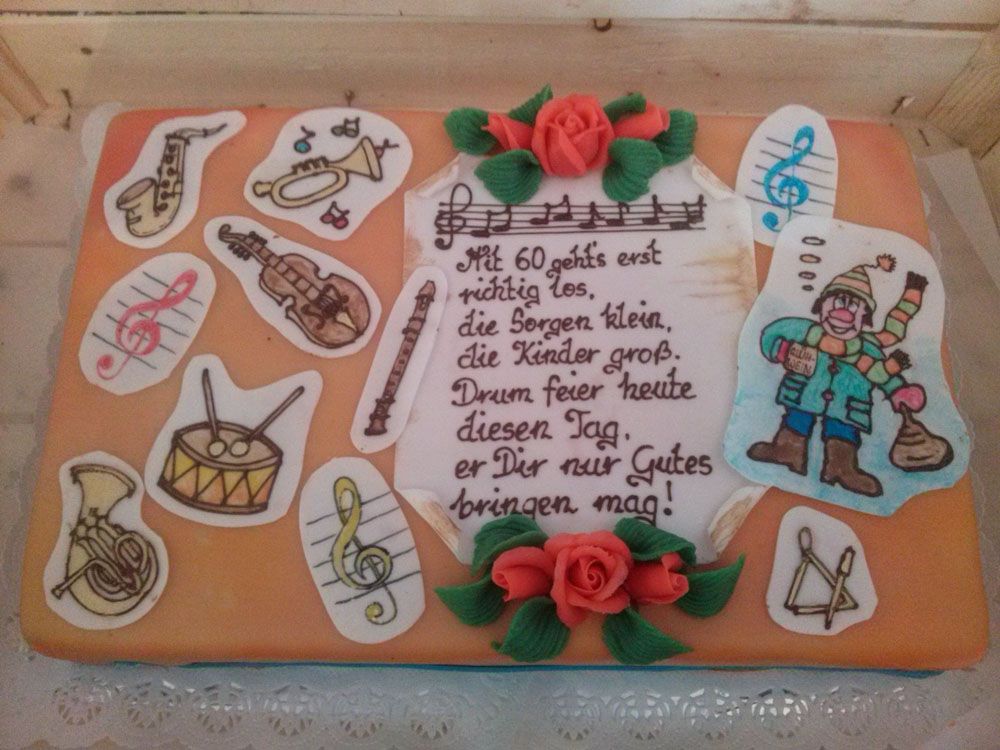 Mit 60 geht's erst
richtig los,
die Sorgen klein,
die Kinder groß.
Drum feier heute
diesen Tag,
er Dir nur Gutes
bringen mag!